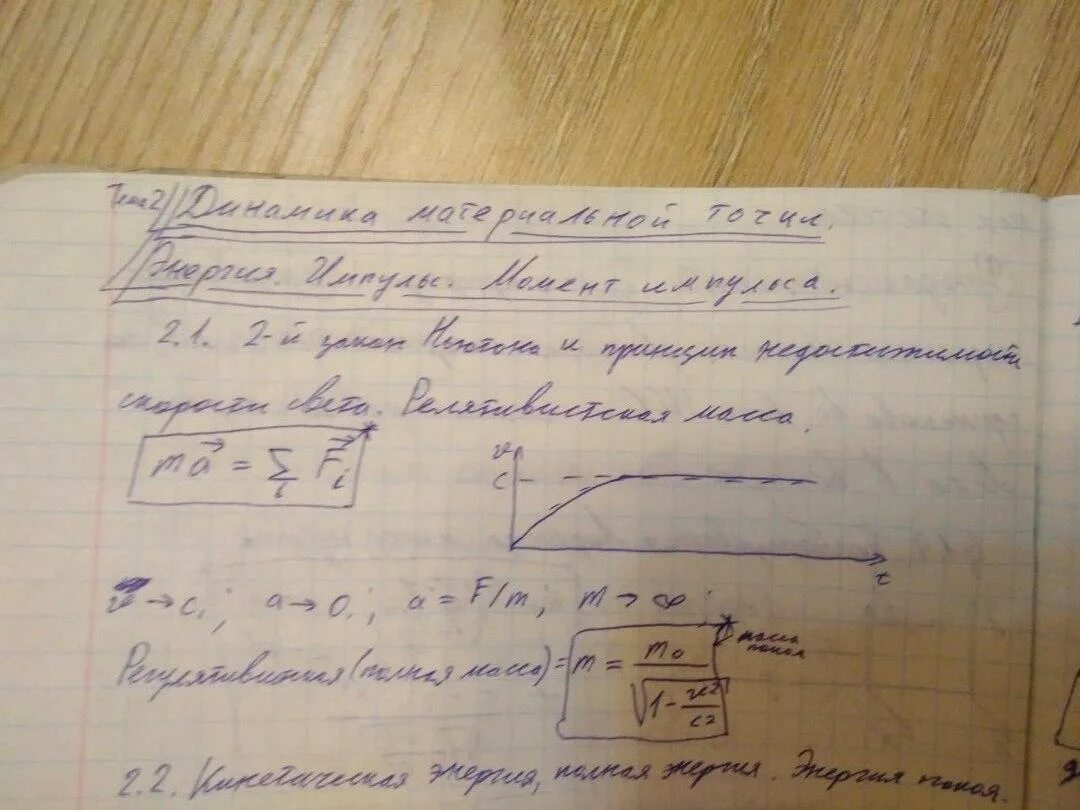 Тема 2 Динамика материальной точки.
Энергия. Импульс. Момент импульса.
2.1. 2-й закон Ньютона и принцип недостижимости
скорости света. Релятивистская масса.
m\vec{a} = \sum_i \vec{F}_i
v
c
t
v → c; a → 0; a = F/m; m → ∞;
(полная масса) = m = m₀ / √(1 - v²/c²)
масса покоя
2.2. Кинетическая энергия, полная энергия. Энергия покоя.